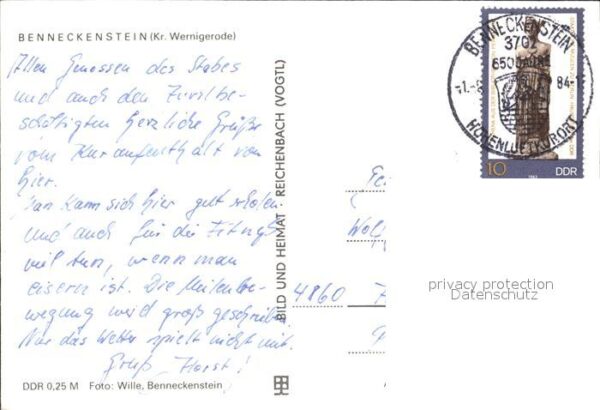 BENNECKENSTEIN (Kr. Wernigerode)
Allen Genossen des Stabes
und auch den Zivilbe-
schäftigten herzliche Grüße
vom Kuraufenthalt von
hier.
Man kann sich hier gut erholen
und auch für die
viel tun, wenn man
eisern ist. Die Meilenbe-
wegung wird groß geschrieben
Nur das Wetter spielt nicht mit.
Gruß Horst!
DDR 0,25 M Foto: Wille, Benneckenstein
BILD UND HEIMAT REICHENBACH (VOGTL)
BENNECKENSTEIN
3702
84-1
HÖHENLUFTKURORT
10
1983
DDR
4860
privacy protection
Datenschutz